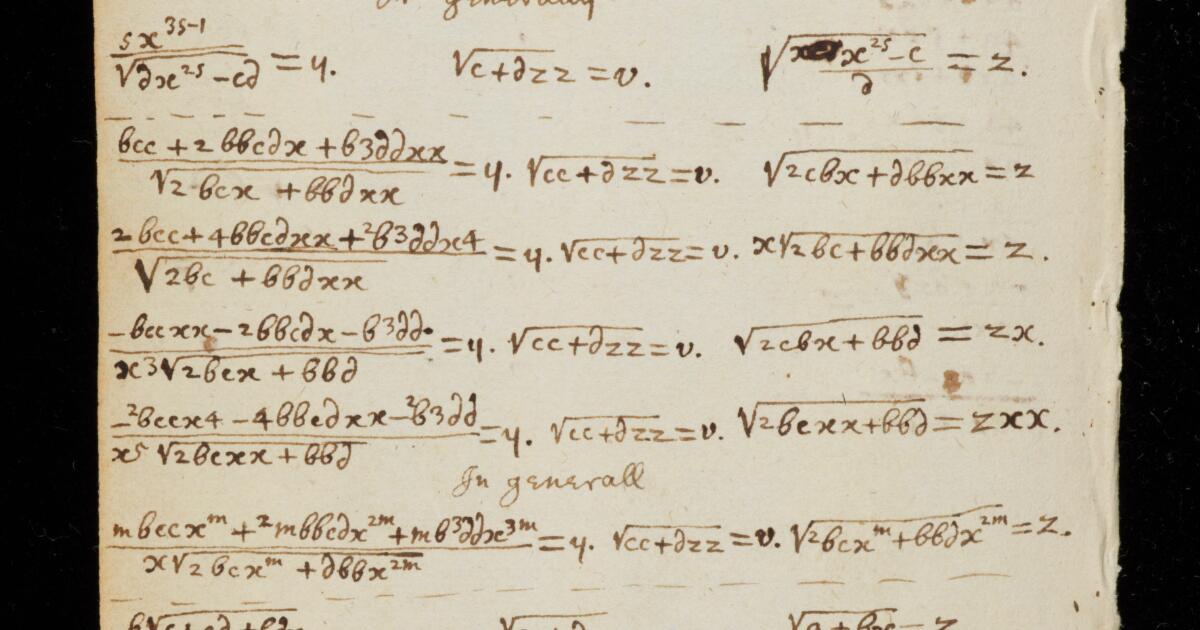 In generally
5x^{3s-1}/√(dx^{2s} - cd) = y. √(c+dzz) = v. √((x^{2s} - c)/d) = z.
(bcc + 2bbcdx + b3ddxx)/√(2bcx + bbdxx) = y. √(cc+dzz) = v. √(2cbx + dbbxx) = z
(2bcc + 4bbcdxx + 2b3ddx4)/√(2bc + bbdxx) = y. √(cc+dzz) = v. x√(2bc + bbdxx) = z.
(-bccxx - 2bbcdx - b3dd)/(x3√(2bcx + bbd)) = y. √(cc+dzz) = v. √(2cbx + bbd) = zx.
(-2bccx4 - 4bbcdxx - 2b3dd)/(x5√(2bcxx + bbd)) = y. √(cc+dzz) = v. √(2bcxx + bbd) = zxx.
In generall
(mbccx^m + 2mbbcdx^{2m} + mb3ddx^{3m})/(x√(2bcx^m + dbbx^{2m})) = y. √(cc+dzz) = v. √(2bcx^m + bbdx^{2m}) = z.